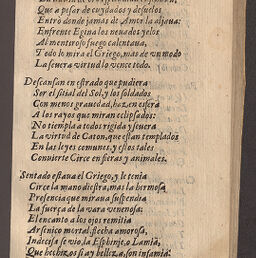 Que a pesar de cuydados y desuelos,
Entrò donde jamas de Amor la aljaua:
Enfrente Egina los neuados yelos
Al mentiroso fuego calentaua,
Todo lo mira el Griego, mas de vn modo
La seuera virtud lo vence todo.
Descansan en estrado que pudiera
Ser el sitial del Sol, y los soldados
Con menos grauedad, hazen esfera
A los rayos que miran eclipsados:
No tiempla a todos rigida y seuera
La virtud de Caton, que estan templados
En las leyes comunes, y estos tales
Conuierte Circe en fieras y animales.
Sentado estaua el Griego, y le tenia
Circe la mano diestra, mas la hermosa
Presencia que miraua suspendia
La fuerça de la vara venenosa:
El encanto a los ojos remitia
Arsenico mortal, flecha amorosa,
Indecisa se vio, la Esphinge, o Lamia,
Que hechizos si ay belleza, son infamia.